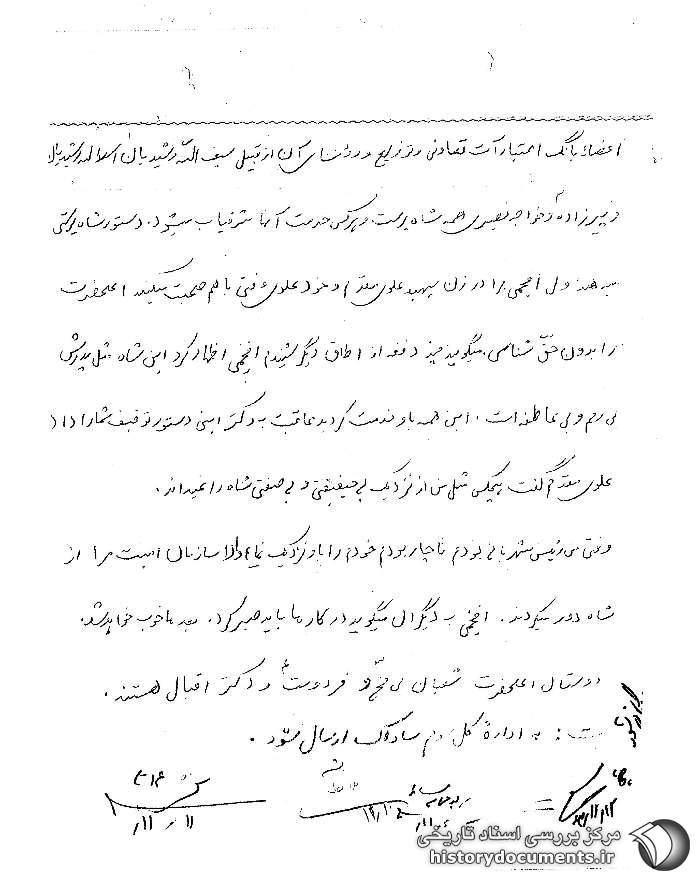 اعضاء بانک اعتبارات تعاونی و توزیع و رؤسای آن از قبیل سیف الله رشیدیان اسداله رشیدیان
و پیرزاده و خواجه نصیری همه شاه پرست و هرکس خدمت آنها شرفیاب میشود. دستور شاه پرستی
میدهند ولی اخیراً در زن سپهبد علوی مقدم و خود علوی وقتی با هم صحبت میکنند اعلیحضرت
را بدون حق شناسی میگویند دفعه از اطاق دیگر شنیدم اظهار کرد این شاه مثل پدرش
بی رحم و بی عاطفه است. این همه باو خدمت کردید عاقبت به دکتر امینی دستور توقیف شما را داد
علوی مقدم گفت هیچکس مثل من از نزدیک بی حقیقتی و بی صفتی شاه را نمیداند.
وقتی من رئیس شهربانی بودم ناچار بودم خودم را باو نزدیک نمایم والا سازمان امنیت مرا از
شاه دور میکردند. به دیگران میگوید در کارها باید صبر کرد. بعدها خوب خواهد شد.
دوستان اعلیحضرت شعبان بی مخ و فردوست و دکتر اقبال هستند.
به اداره کل سوم ساواک ارسال شود.
مرکز بررسی اسناد تاریخی
historydocuments.ir